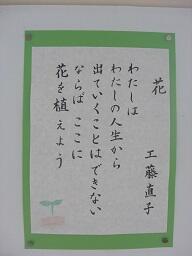 花
工藤直子
わたしは
わたしの人生から
出ていくことはできない
ならば ここに
花を植えよう